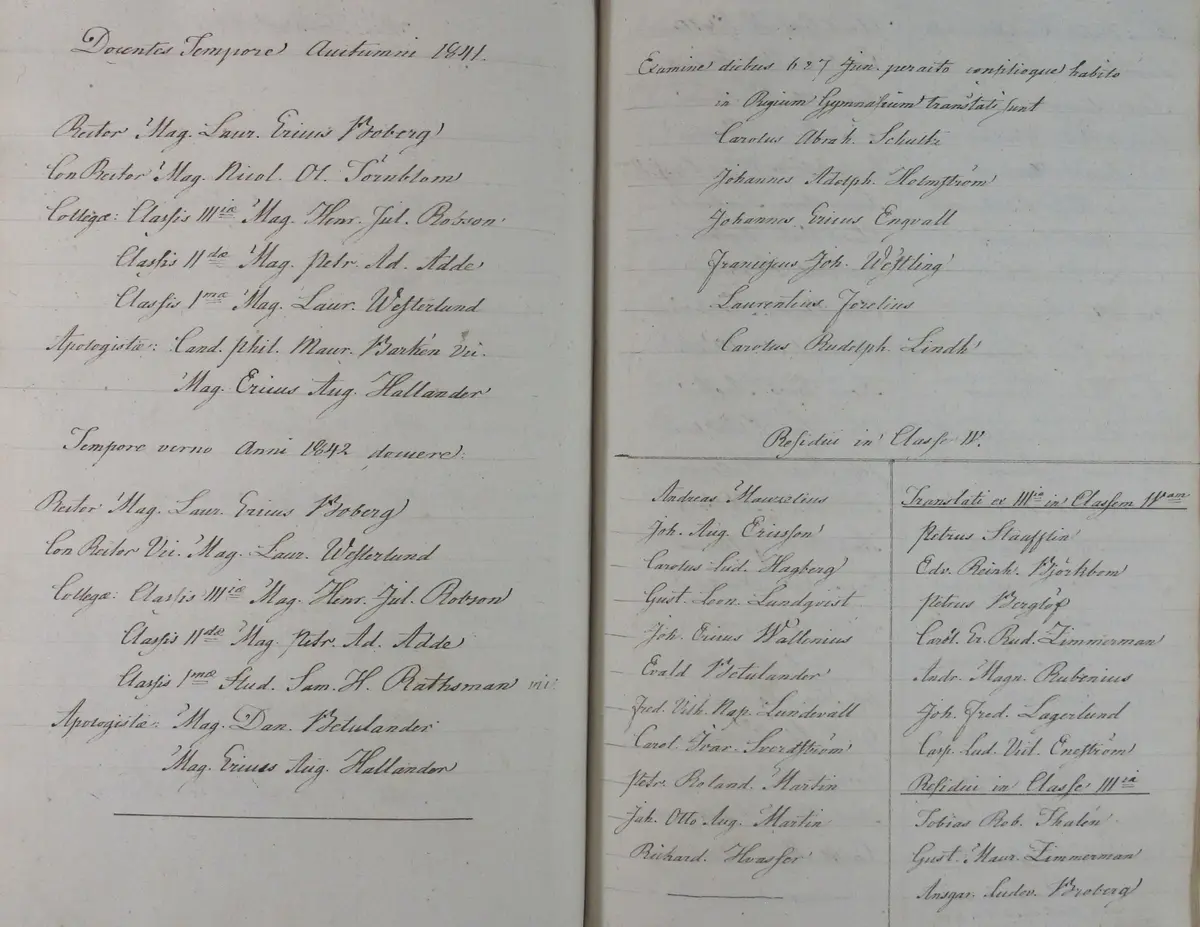 Docentes Tempore Autumni 1841.
Rector Mag. Laur. Ericus Boberg
Con Rector Mag. Nicol. Ol. Törnblom
Collegæ: Classis III:iæ Mag. Henr. Jul. Robson
Classis II:dæ Mag. Petr. Ad. Adde
Classis I:mæ Mag. Laur. Westerlund
Apologistæ: Cand. phil. Maur. Barkén Vic.
Mag. Ericus Aug. Hallander
Tempore verno Anni 1842 docuere:
Rector Mag. Laur. Ericus Boberg
Con Rector Vic. Mag. Laur. Westerlund
Collegæ: Classis III:iæ Mag. Henr. Jul. Robson
Classis II:dæ Mag. Petr. Ad. Adde
Classis I:mæ Stud. Sam. H. Rathsman vic.
Apologistæ: Mag. Dan. Betulander
Mag. Ericus Aug. Hallander
Examine diebus 6 & 7 Jun. peracto consilioque habito
in Regium Gymnasium translati sunt
Carolus Abrah. Schultz
Johannes Adolph. Holmström
Johannes Ericus Engvall
Franciscus Joh. Westling
Laurentius Forelius
Carolus Rudolph. Lindh
Residui in Classe IV.
Andreas Joh. Aug. Ericsson
Carolus Lud. Hagberg
Gust. Leon. Lundqvist
Joh. Ericus Wallenius
Evald Betulander
Fred. Vilh. Nap. Lundevall
Carol. Ivar. Sverdström
Petr. Roland. Martin
Joh. Otto Aug. Martin
Richard. Hvasser
Translati ex III:ia in Classem IV:am
Petrus Staufflin
Edv. Reinh. Björkbom
Petrus Berglöf
Carol. Er. Rud. Zimmerman
Andr. Magn. Rubenius
Joh. Fred. Lagerlund
Casp. Lud. Vil. Eneström
Residui in Classe III:ia
Tobias Rob. Thalén
Gust. Maur. Zimmerman
Ansgar. Ludov. Broberg